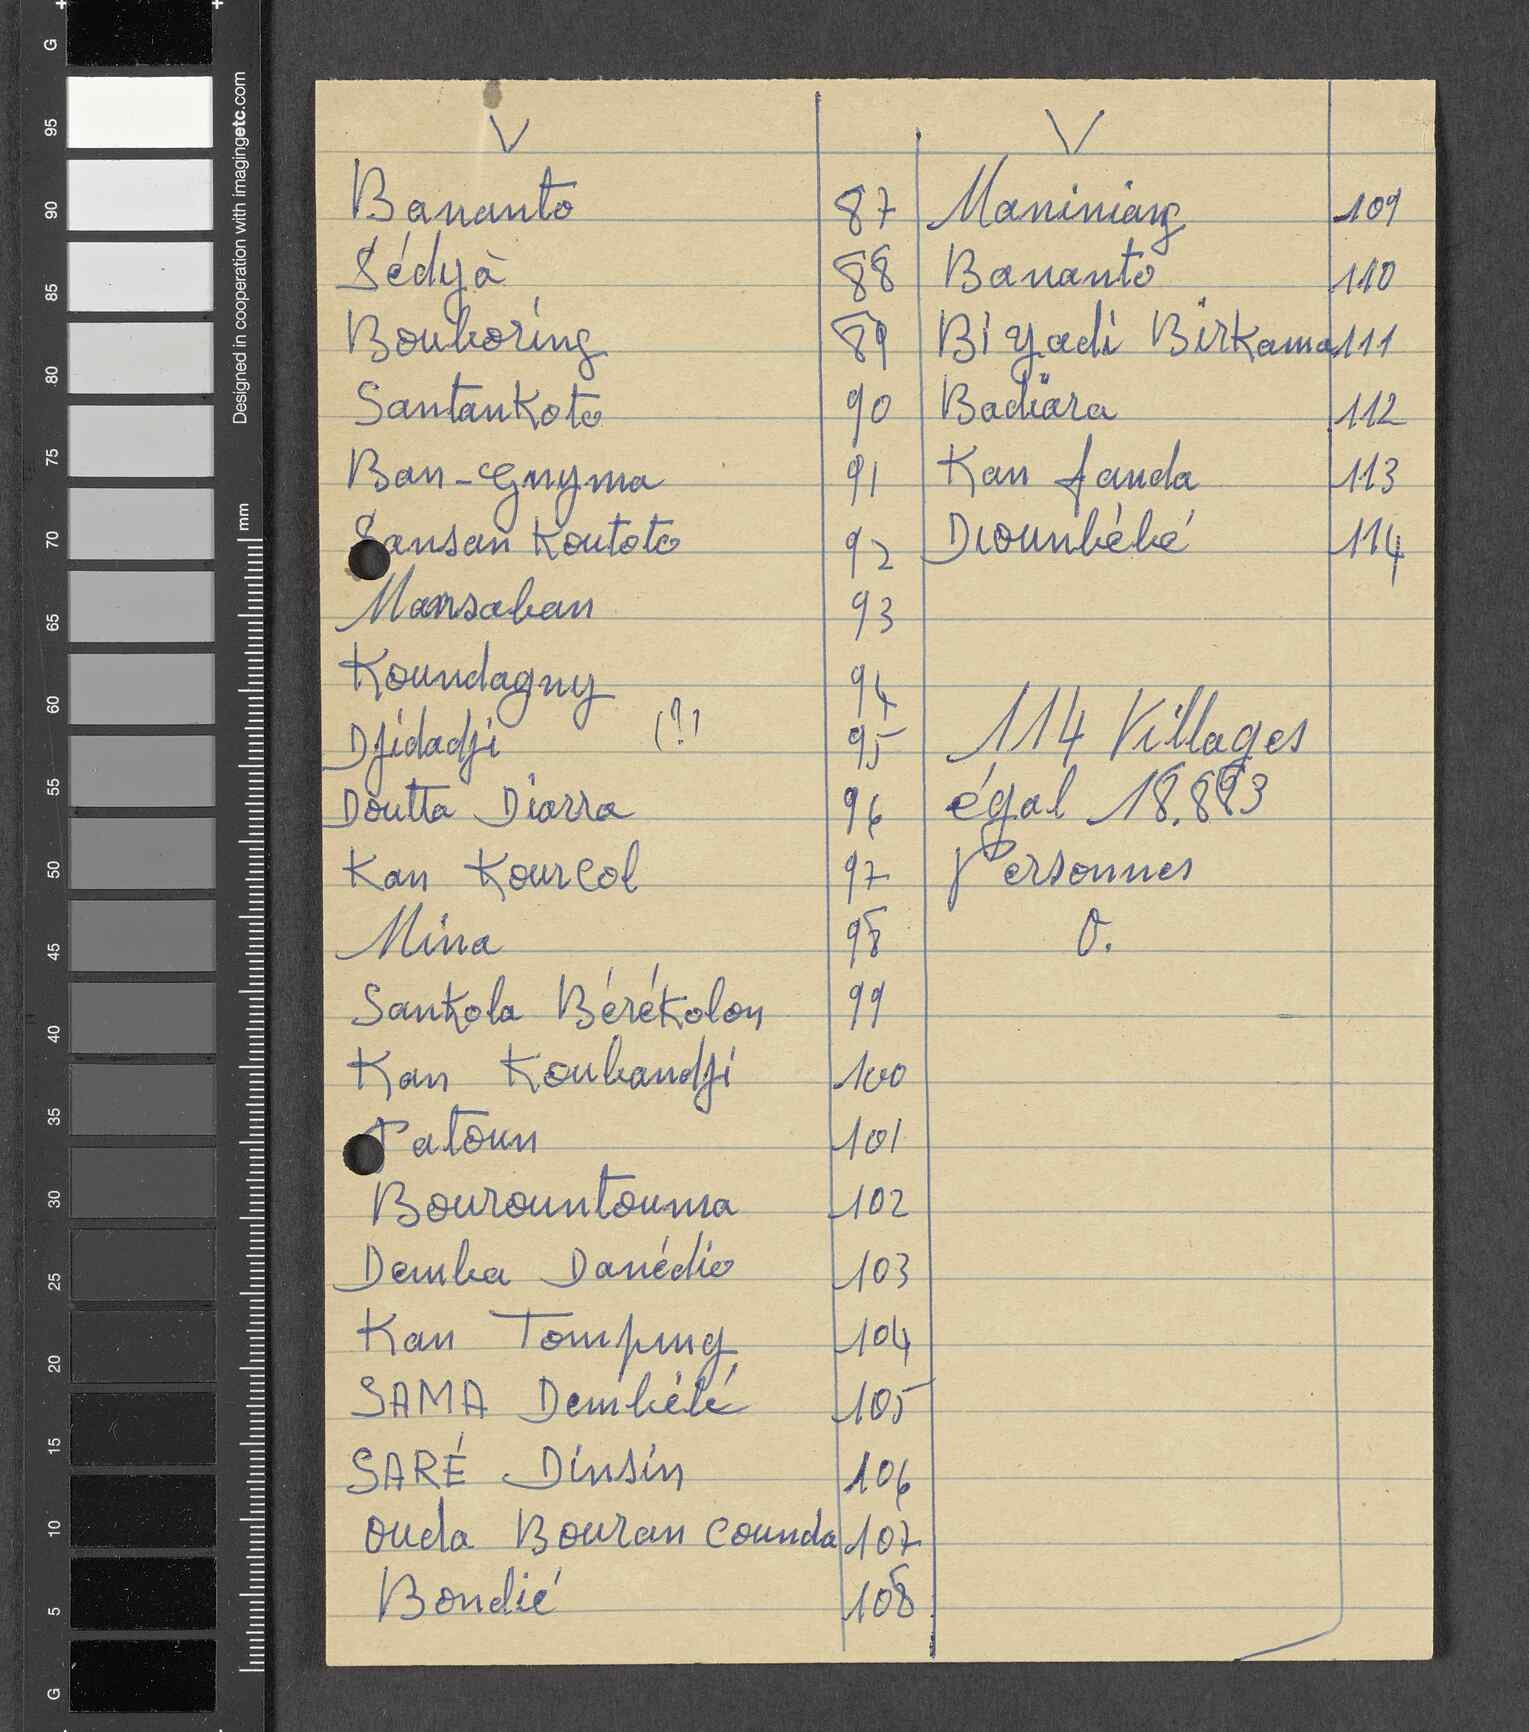 V
Bananto 87
Sédyà 88
Bouboring 89
Santankoto 90
Ban-Gnyma 91
Sansan Koutoto 92
Mansaban 93
Koundagny 94
Djidadji (?) 95
Doutta Diarra 96
Kan Kourcol 97
Mina 98
Sankola Bérékolon 99
Kan Koubandji 100
Patoun 101
Bourountouma 102
Demba Danédio 103
Kan Tomping 104
SAMA Dembélé 105
SARÉ Dinsin 106
Ouda Bouran Counda 107
Bondié 108
V
Maniniang 109
Bananto 110
Bi Yadi Birkama 111
Badiara 112
Kan fanda 113
Diounbébé 114
114 Villages
égal 18.893
Personnes
O.
G
95
90
85
80
75
70
65
60
55
50
45
40
35
30
25
20
15
10
5
G
mm
Designed in cooperation with imagingetc.com